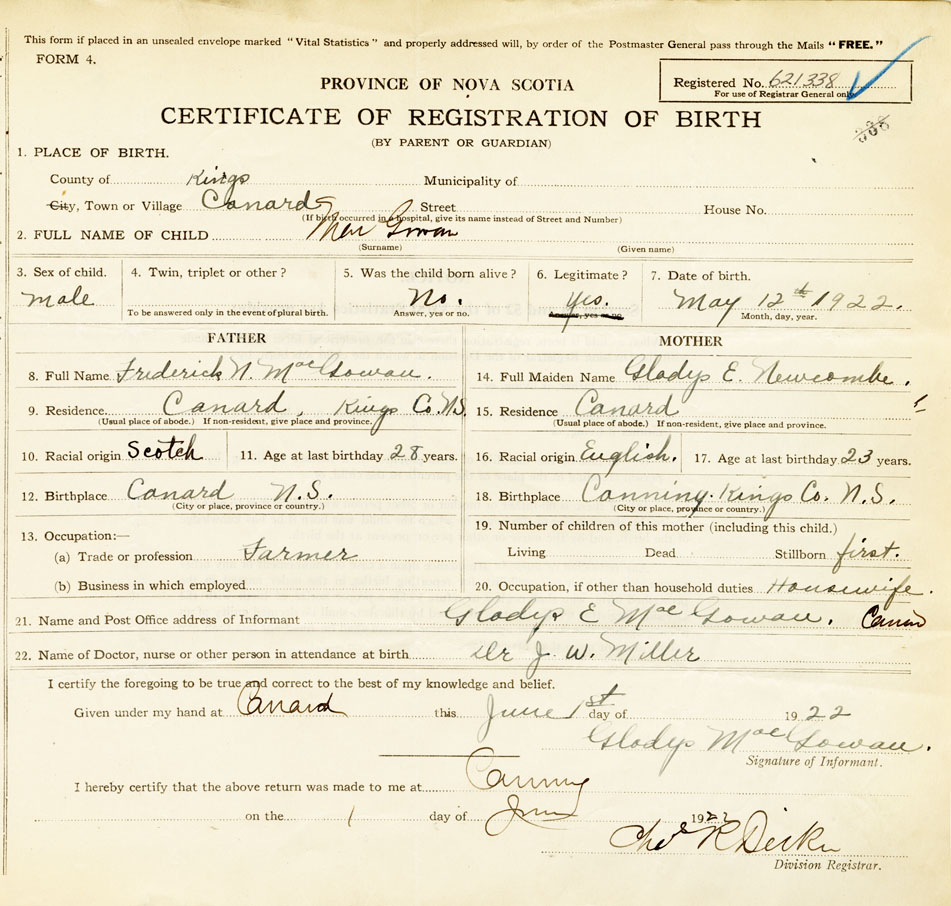 This form if placed in an unsealed envelope marked "Vital Statistics" and properly addressed will, by order of the Postmaster General pass through the Mails "FREE."
FORM 4.
PROVINCE OF NOVA SCOTIA
Registered No. 621338
For use of Registrar General only
CERTIFICATE OF REGISTRATION OF BIRTH
(BY PARENT OR GUARDIAN)
1. PLACE OF BIRTH.
County of Kings Municipality of
City, Town or Village Canard Street House No.
(If birth occurred in a hospital, give its name instead of Street and Number)
2. FULL NAME OF CHILD Mac Gowan
(Surname) (Given name)
3. Sex of child. 4. Twin, triplet or other? 5. Was the child born alive? 6. Legitimate? 7. Date of birth.
male No. yes. May 12th 1922.
To be answered only in the event of plural birth. Answer, yes or no. Answer, yes or no. Month, day, year.
FATHER
8. Full Name Frederick N. MacGowan.
9. Residence Canard, Kings Co. N.S.
(Usual place of abode.) If non-resident, give place and province.
10. Racial origin Scotch 11. Age at last birthday 28 years.
12. Birthplace Canard N.S.
(City or place, province or country.)
13. Occupation:—
(a) Trade or profession Farmer
(b) Business in which employed
MOTHER
14. Full Maiden Name Gladys E. Newcombe.
15. Residence Canard
(Usual place of abode.) If non-resident, give place and province.
16. Racial origin English. 17. Age at last birthday 23 years.
18. Birthplace Canning. Kings Co. N.S.
(City or place, province or country.)
19. Number of children of this mother (including this child.)
Living Dead Stillborn first.
20. Occupation, if other than household duties Housewife.
21. Name and Post Office address of Informant Gladys E MacGowan. Canard
22. Name of Doctor, nurse or other person in attendance at birth Dr J. W. Miller
I certify the foregoing to be true and correct to the best of my knowledge and belief.
Given under my hand at Canard this June 1st day of 1922
Gladys MacGowan.
Signature of Informant.
I hereby certify that the above return was made to me at Canning
on the 1 day of June 1922
Chas R Dickie
Division Registrar.